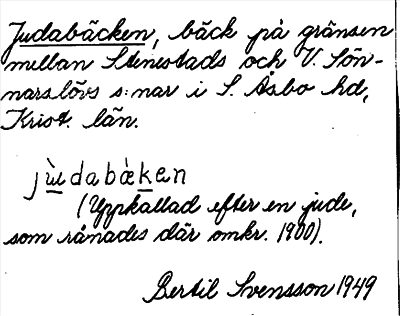 Judabäcken, bäck på gränsen
mellan Stenestads och V. Sön-
narslövs s:nar i S. Åsbo hd,
Krist. län.
jùdabäken
(Uppkallad efter en jude,
som rånades där omkr. 1900).
Bertil Svensson 1949